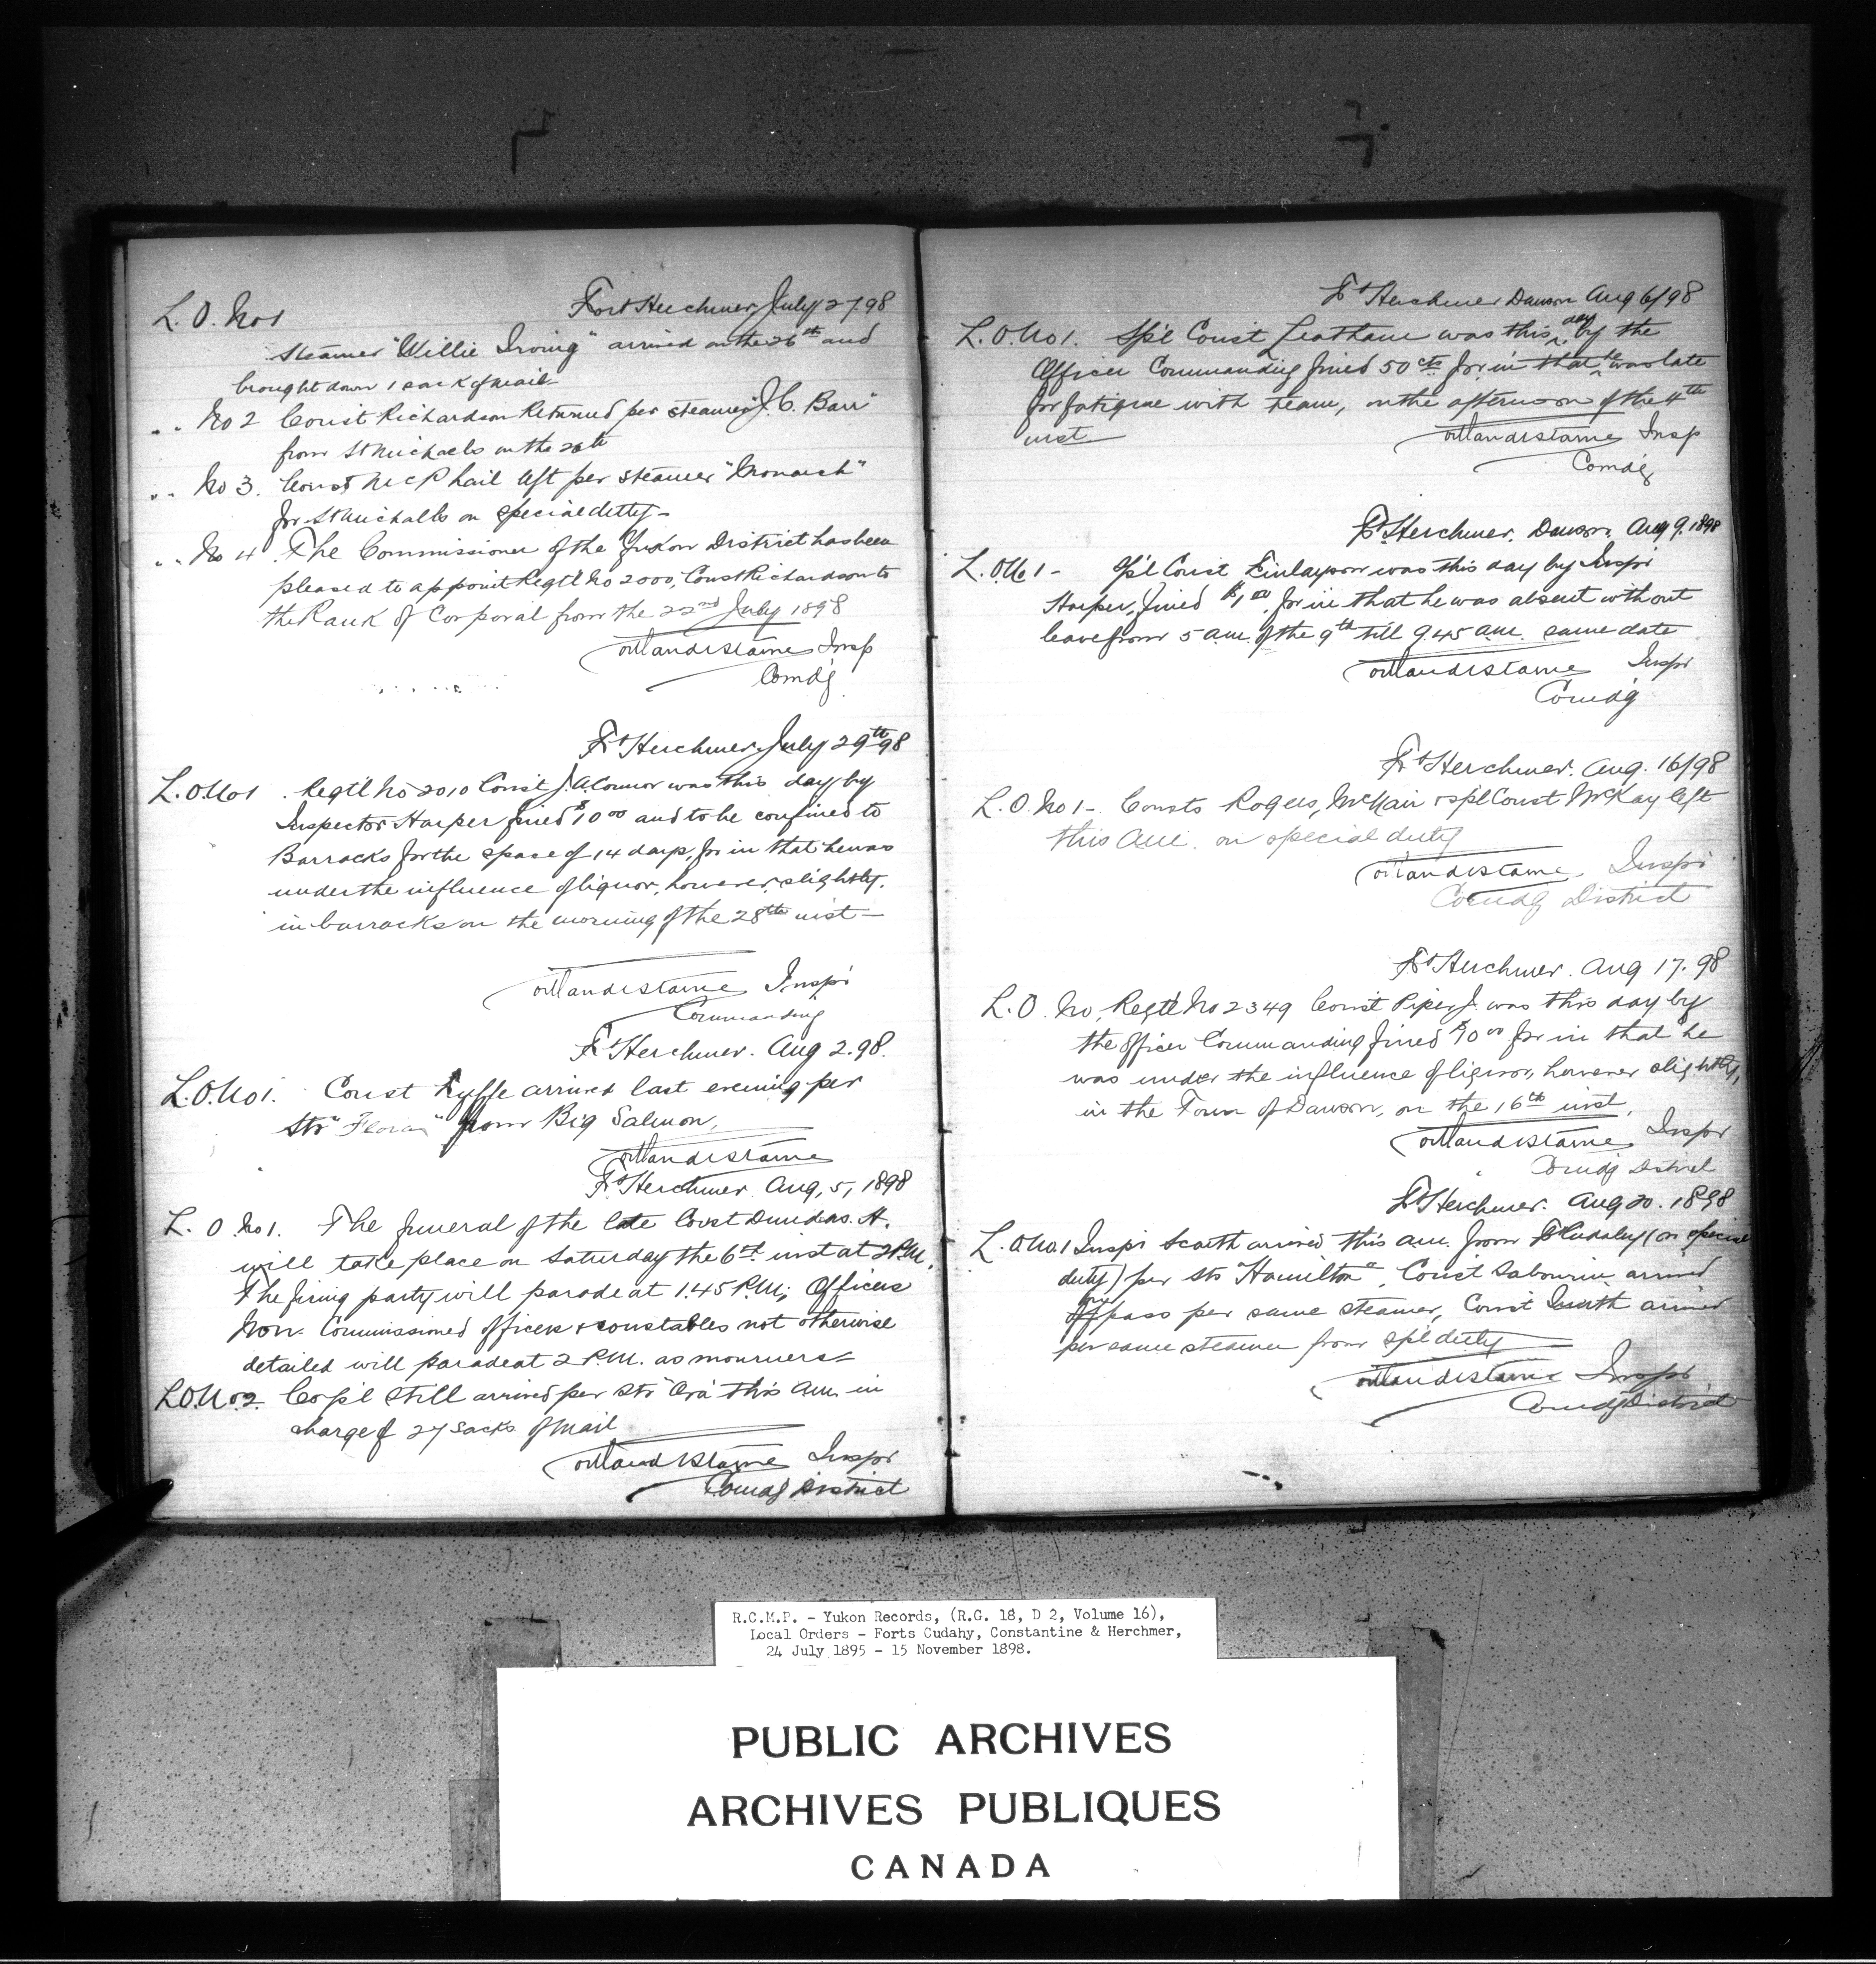 Fort Herchmer July 27. 98
L. O. No 1
Steamer "Willie Irving" arrived on the 26th and
brought down 1 sack of mail
" " No 2 Const Richardson Returned per steamer "J. C. Barr"
from St Michaels on the 26th
" " No 3. Const McPhail left per steamer "Monarch"
for St Michalls on special duty -
" " No 4. The Commissioner of the Yukon District has been
pleased to appoint Regtl No 2000, Const Richardson to
the Rank of Corporal from the 22nd July 1898
Insp
Comdg
Ft Herchmer July 29th 98
L. O. No 1 . Regtl No 2010 Const J. A Connor was this day by
Inspector Harper fined $10 00 and to be confined to
Barracks for the space of 14 days, for in that he was
under the influence of liquor, however, slightly.
in barracks on the morning of the 28th inst -
Inspr
Commanding
Ft Herchmer. Aug 2. 98.
L. O. No 1. Const Fyffe arrived last evening per
Str "Flora" from Big Salmon.
Ft Herchmer Aug, 5, 1898
L. O No 1. The funeral of the late Const Dundas. A.
will take place on Saturday the 6th inst at 2 P.M.
The firing party will parade at 1.45 P.M; Officers
Non. Commissioned officers & constables not otherwise
detailed will parade at 2 P.M. as mourners -
L O. No. 2. Corp'l Still arrived per Str "Ora" this am in
charge of 27 sacks of mail
Inspr
Comdg District
Ft Herchmer Dawson Aug 6/98
L. O. No 1. Spl Const Leatham was this day by the
Officer Commanding fined 50 cts for in that he was late
for fatigue with team, on the afternoon of the 4th
inst -
Insp
Comdg
Ft Herchmer. Dawson. Aug 9. 1898
L. O. No 1 - Spl Const Finlayson was this day by Inspr
Harper, fined $1,00, for in that he was absent without
leave from 5 am. of the 9th till 9.45 am. same date
Inspr
Comdg
Ft Herchmer. Aug. 16/98
L. O. No 1 - Consts Rogers, McNair & spl Const McKay left
this am. on special duty
Inspr
Comdg District
Ft Herchmer. Aug 17. 98
L. O. No, Regt'l No 2349 Const Piper, J. was this day by
the officer Commanding fined $10 00 for in that he
was under the influence of liquor, however slightly,
in the Town of Dawson, on the 16th inst.
Inspr
Comdg District
Ft Herchmer. Aug 20. 1898
L. O. No. 1 Inspr Scarth arrived this am. from Ft Cudahy (on special
duty) per Str "Hamilton", Const Sabourin arrived
on pass per same steamer, Const Smith arrived
per same steamer from spl duty
Inspr
Comdg District
R.C.M.P. - Yukon Records, (R.G. 18, D 2, Volume 16),
Local Orders - Forts Cudahy, Constantine & Herchmer,
24 July 1895 - 15 November 1898.
PUBLIC ARCHIVES
ARCHIVES PUBLIQUES
CANADA